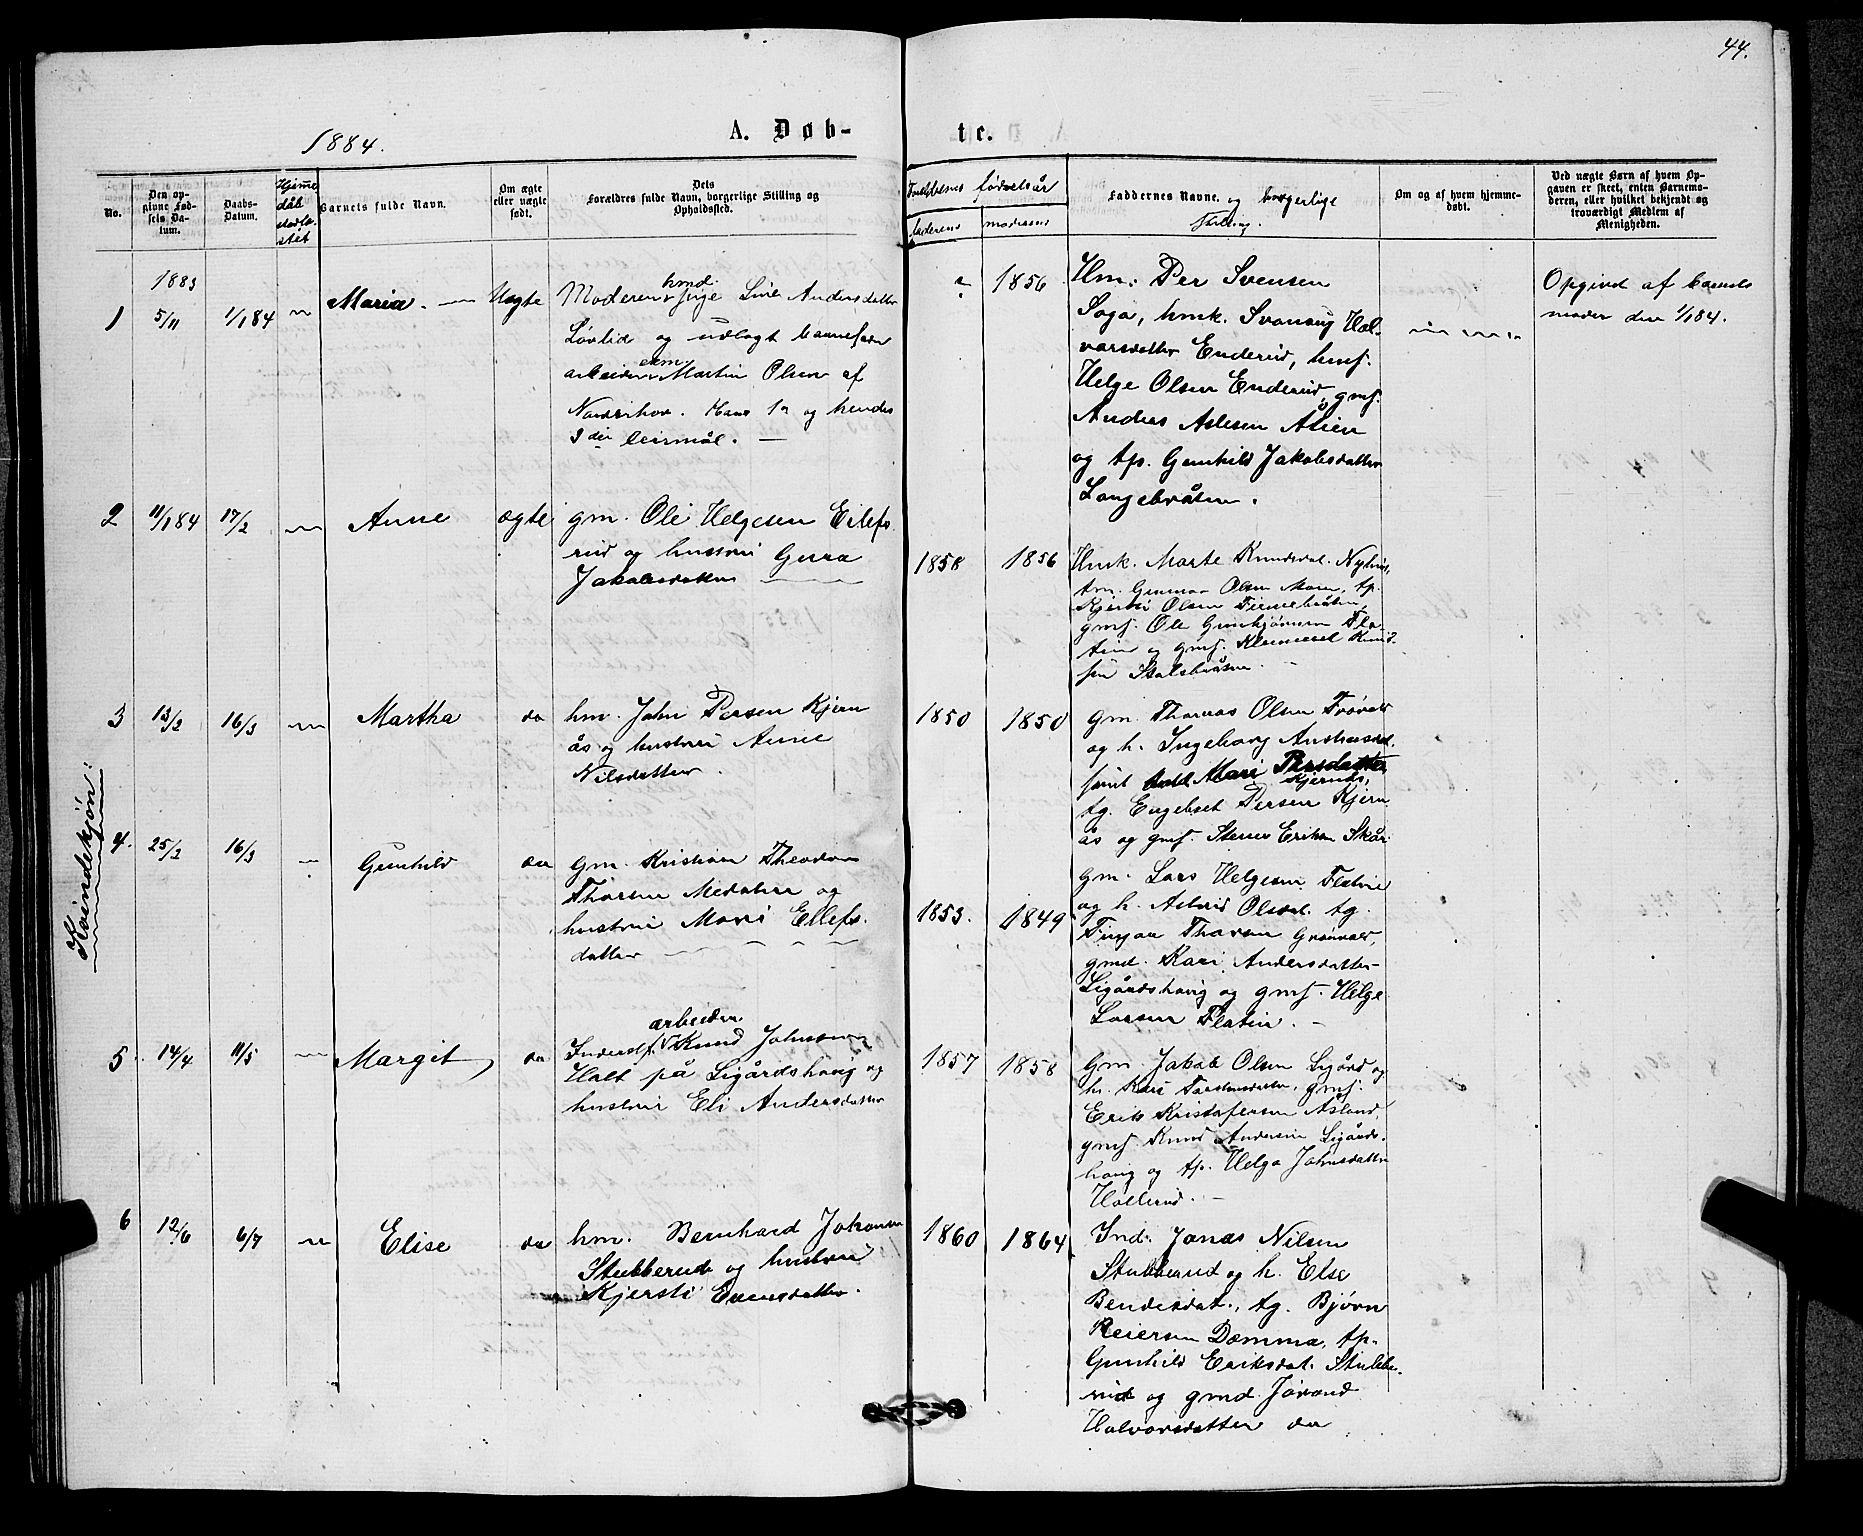 44.
1884.
A. Døb-
te.
No.
Den op-
givne Fød-
sels Da-
tum.
Daabs-
Datum.
Hjemme
dåb
stadfæ-
stet
Barnets fulde Navn.
Om ægte
eller uægte
født.
Dets
Forældres fulde Navn, borgerlige Stilling og
Opholdssted.
fødselsår
faderens
moderens
Faddernes Navne. og borgerlige
Stilling.
Om og af hvem hjemme-
døbt.
Ved uægte Børn af hvem Op-
gaven er skeet, enten Barnemo-
deren, eller hvilket bekjendt og
troværdigt Medlem af
Menigheden.
Kvindekjøn:
1
1883
5/11
1/1 84
Maria
Uægte
hmd.
Moderen Pige Live Andersdatter
Løvlid og udlagt barnefader
arbeider Martin Olsen af
Norderhov. Hans 1ste og hendes
3die leirmål.
?
1856
Hm: Per Svensen
Saga, hmk. Svanaug Hal-
varsdatter Enderud, hmf.
Helge Olsen Enderud, gmf.
Anders Aslesen Åsien
og tp. Gunhild Jakobsdatter
Langebråten.
Opgivet af barnets
moder den 1/1 84.
2
11/1 84
17/2
Anne
ægte
gm. Ole Helgesen Eilefs-
rud og hustru Guro
Jakobsdatter
1858
1856
Hmk. Marte Knudsdat. Nyhus,
tm. Gunnar Olsen Moen, tp.
Kjersti Olsen Finnebråten,
gmf. Ole Gunbjørnsen Fla-
tin og gmf. Klemmet Knud-
sen Stalsbråten.
3
13/2
16/3
Martha
do
hm. John Persen Kjern
ås og hustru Anne
Nilsdatter.
1850
1850
gm. Thomas Olsen Frøvold
og h. Ingeborg Andreasdat.
samt hmd Mari Persdatter
Kjernås,
tg. Engebret Persen Kjern
ås og gmf. Stener Eriksen Skår
4.
25/2
16/3
Gunhild
do
gm. Kristian Theodor
Thorsen Medalen og
hustru Mari Ellefs-
datter
1853.
1849
gm. Lars Helgesen Flatin
og h. Astrid Olsdat. tg.
Finn Thorsen Grønvold,
gmd. Kari Andersdatter
Ligårdshaug og gmf. Helge
Larsen Flatin.
5
14/4
11/5
Margit
do
arbeider
Inderst Knud Johnsen
Holt på Ligårdshaug og
hustru Eli Andersdatter
1857
1858
Gm. Jakob Olsen Ligård og
h. Kari Torstensdatter, gmf.
Erik Kristofersen Åsland,
gmf. Knud Andersen Ligårds-
haug og tp. Helga Johnsdatter
Hallerud.
6
12/6
6/7
Elise
do
hm. Bernhard Johansen
Stubberud og hustru
Kjersti Evensdatter.
1860
1864
Ind. Jonas Nilsen
Stubberud og h. Else
Bendesdat., tg. Bjørn
Reiersen Dæmma, tp.
Gunhild Eriksdat. Stubbe-
rud og gmd. Jorand
Halvorsdatter do